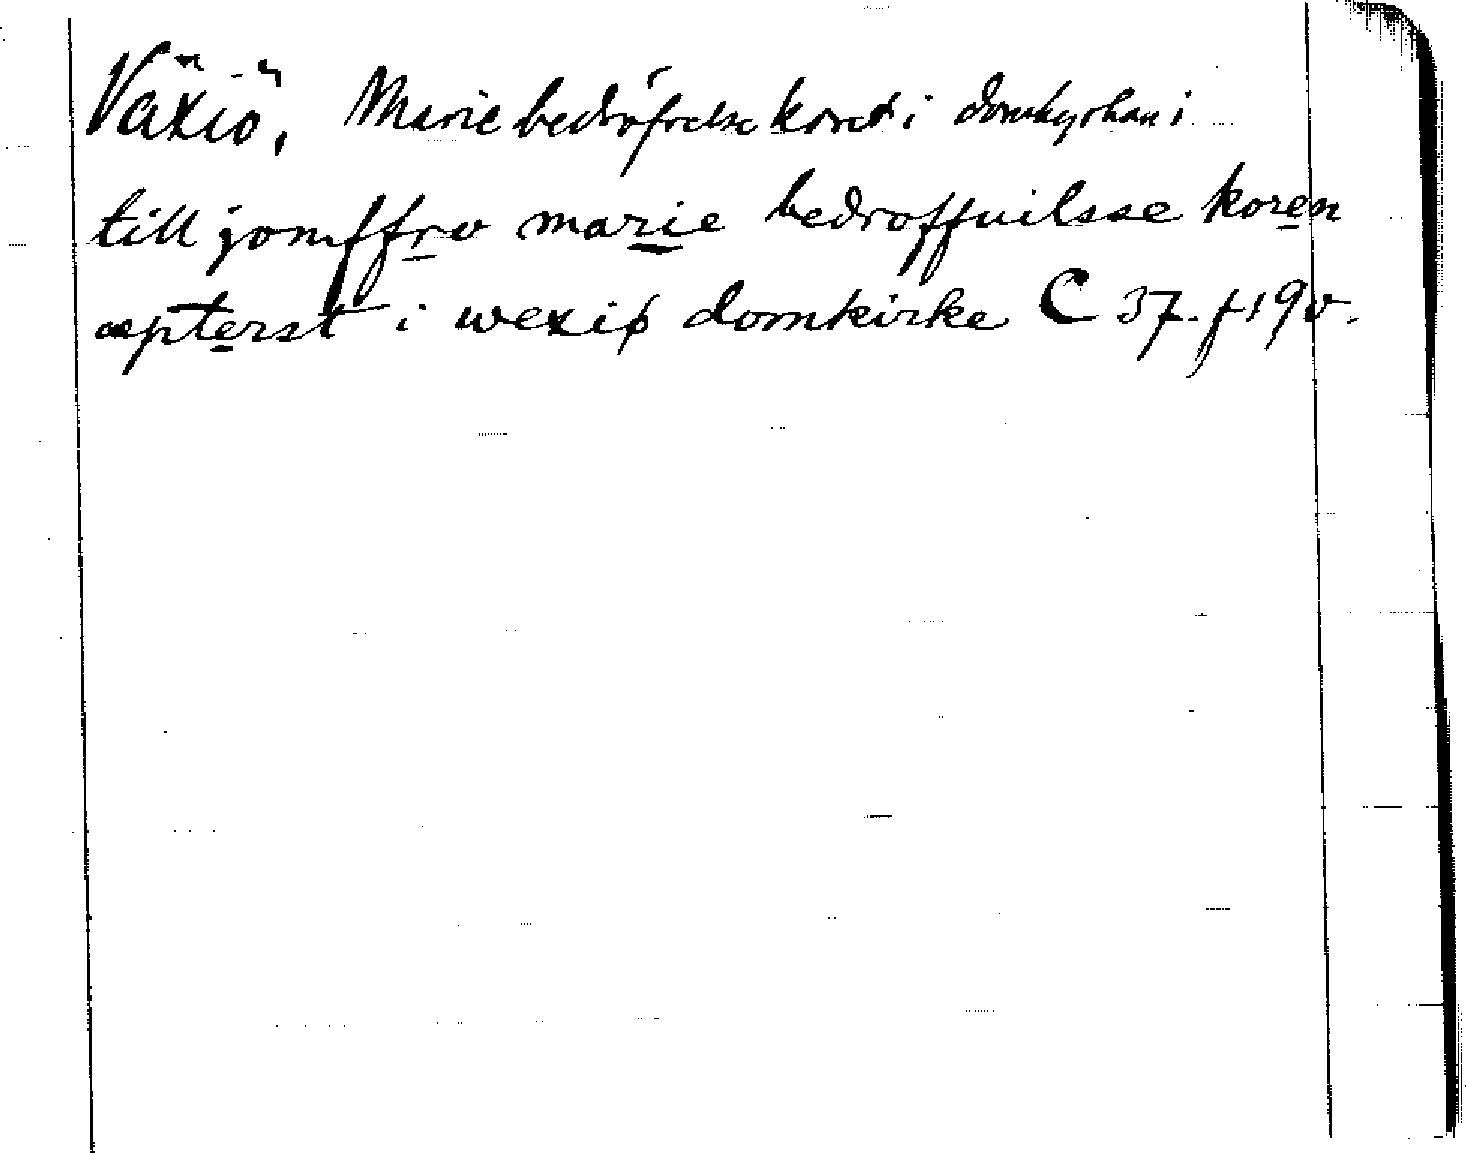 Växiö, Marie bedröfvelse koret i domkyrkan i
till jomffrv marie bedroffuilsse koren
æpterst i wexiø domkirke C 37. f 190.